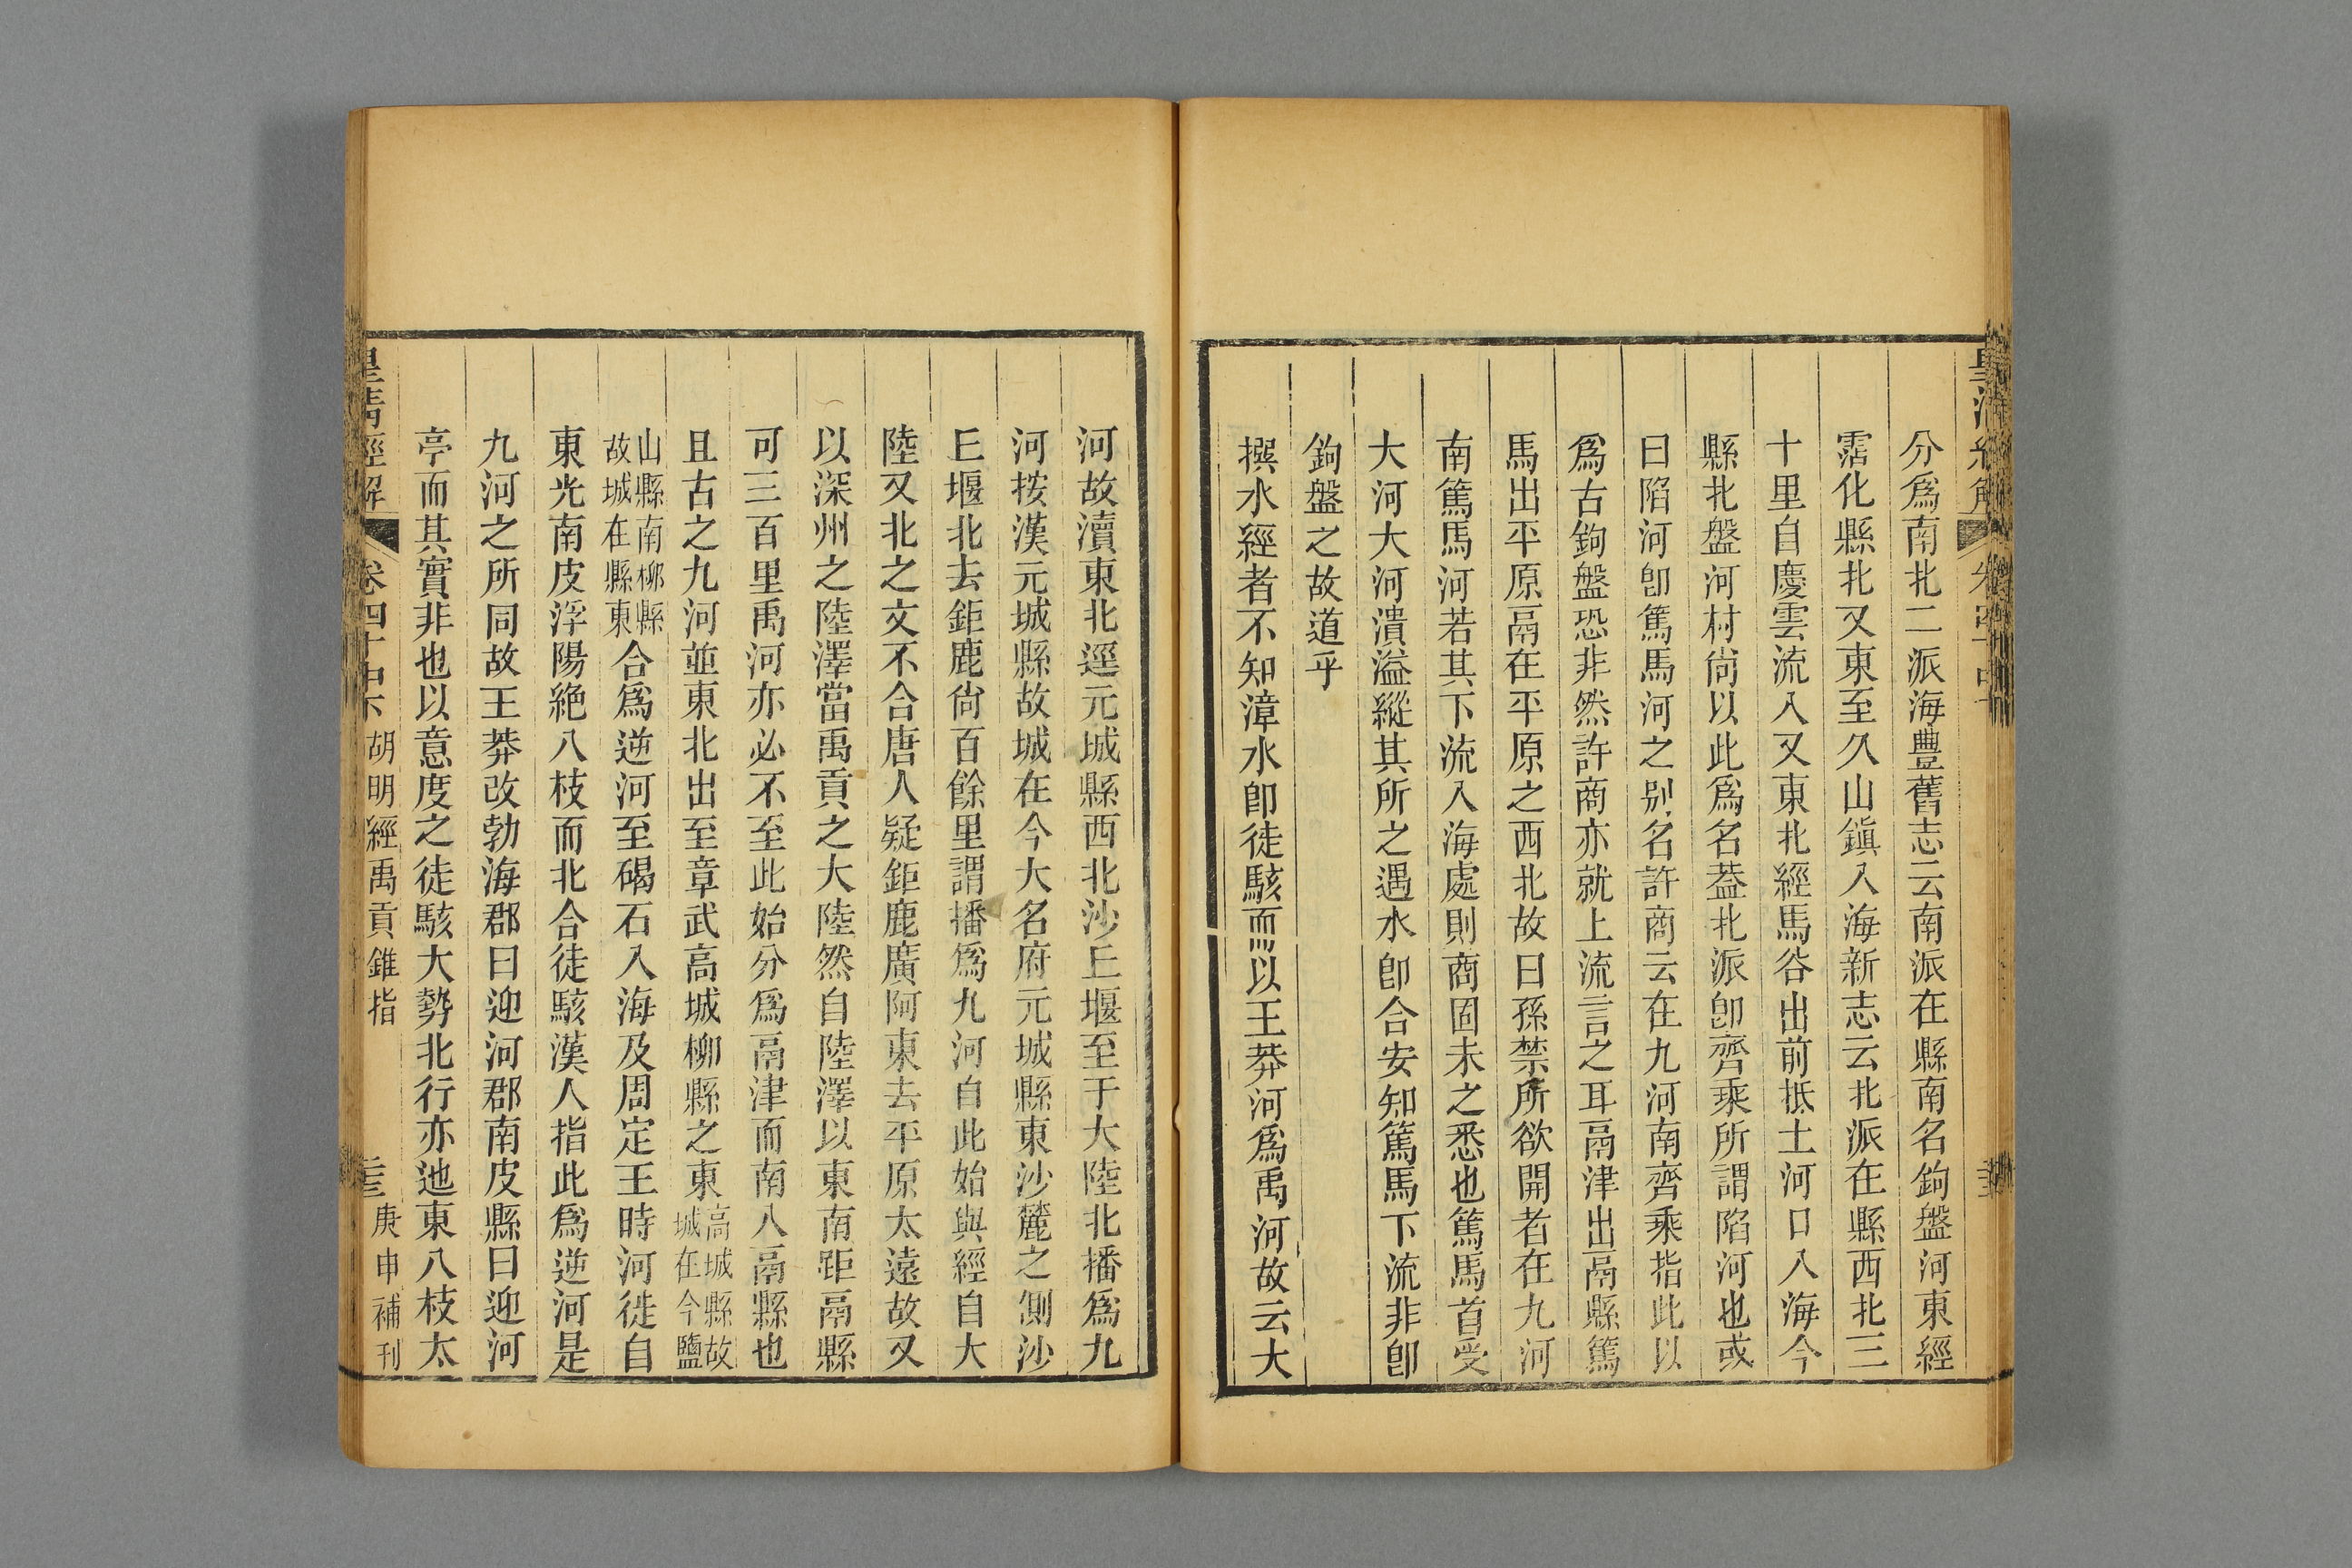 分爲南北二派海豐舊志云南派在縣南名鉤盤河東經
霑化縣北又東至久山鎭入海新志云北派在縣西北三
十里自慶雲流入又東北經馬谷出前抵土河口入海今
縣北盤河村尙以此爲名葢北派卽齊乘所謂陷河也或
曰陷河卽篤馬河之别名許商云在九河南齊乘指此以
爲古鉤盤恐非然許商亦就上流言之耳鬲津出鬲縣篤
馬出平原鬲在平原之西北故曰孫禁所欲開者在九河
南篤馬河若其下流入海處則商固未之悉也篤馬首受
大河大河潰溢縱其所之遇水卽合安知篤馬下流非卽
鉤盤之故道乎
撰水經者不知漳水卽徒駭而以王莽河爲禹河故云大
河故瀆東北逕元城縣西北沙丘堰至于大陸北播爲九
河按漢元城縣故城在今大名府元城縣東沙麓之側沙
丘堰北去鉅鹿尙百餘里謂播爲九河自此始與經自大
陸又北之文不合唐人疑鉅鹿廣阿東去平原太遠故又
以深州之陸澤當禹貢之大陸然自陸澤以東南距鬲縣
可三百里禹河亦必不至此始分爲鬲津而南入鬲縣也
且古之九河並東北出至章武高城柳縣之東高城縣故城在今鹽
山縣南柳縣故城在縣東合爲逆河至碣石入海及周定王時河徙自
東光南皮浮陽絶八枝而北合徒駭漢人指此爲逆河是
九河之所同故王莽改勃海郡曰迎河郡南皮縣曰迎河
亭而其實非也以意度之徒駭大勢北行亦迆東八枝太
皇清經解 卷四十中下 胡明經禹貢錐指 庚申補刊